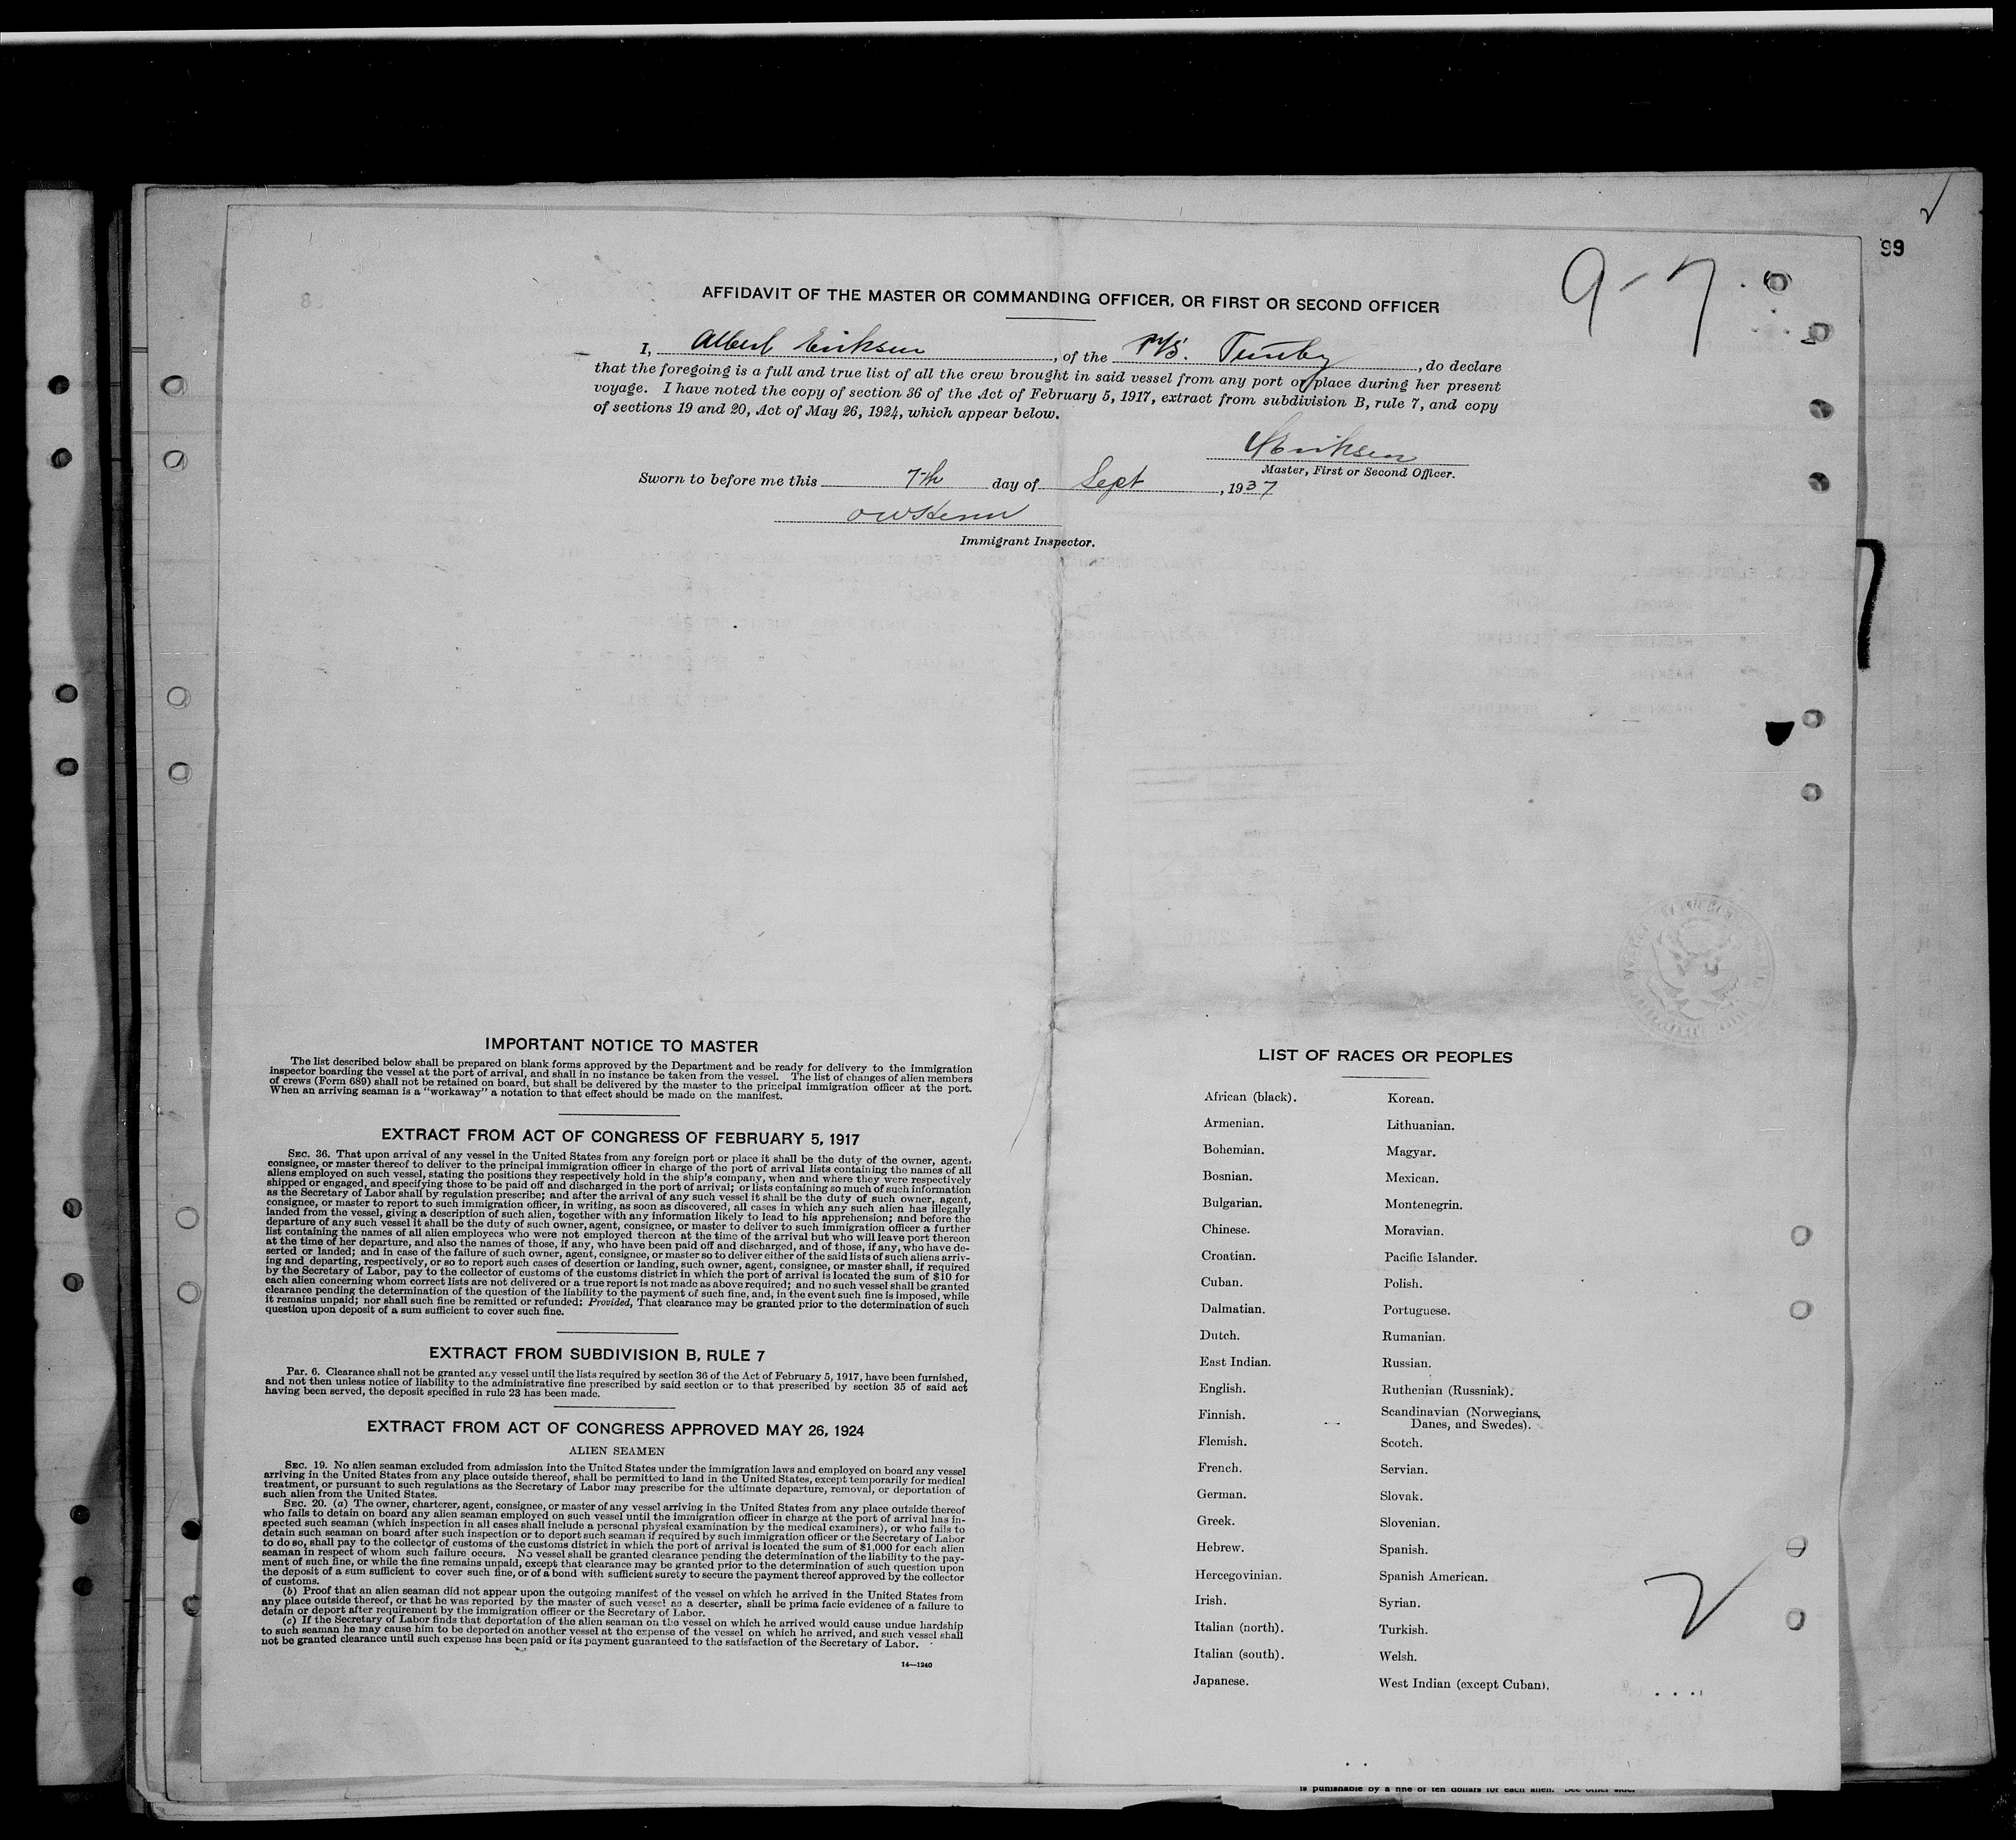 99
9-7
AFFIDAVIT OF THE MASTER OR COMMANDING OFFICER, OR FIRST OR SECOND OFFICER
I, Albert Eriksen, of the M/S. , do declare
that the foregoing is a full and true list of all the crew brought in said vessel from any port or place during her present
voyage. I have noted the copy of section 36 of the Act of February 5, 1917, extract from subdivision B, rule 7, and copy
of sections 19 and 20, Act of May 26, 1924, which appear below.
AEriksen
Master, First or Second Officer.
Sworn to before me this 7th day of Sept, 1937
Immigrant Inspector.
IMPORTANT NOTICE TO MASTER
The list described below shall be prepared on blank forms approved by the Department and be ready for delivery to the immigration
inspector boarding the vessel at the port of arrival, and shall in no instance be taken from the vessel. The list of changes of alien members
of crews (Form 689) shall not be retained on board, but shall be delivered by the master to the principal immigration officer at the port.
When an arriving seaman is a "workaway" a notation to that effect should be made on the manifest.
EXTRACT FROM ACT OF CONGRESS OF FEBRUARY 5, 1917
SEC. 36. That upon arrival of any vessel in the United States from any foreign port or place it shall be the duty of the owner, agent,
consignee, or master thereof to deliver to the principal immigration officer in charge of the port of arrival lists containing the names of all
aliens employed on such vessel, stating the positions they respectively hold in the ship's company, when and where they were respectively
shipped or engaged, and specifying those to be paid off and discharged in the port of arrival; or lists containing so much of such information
as the Secretary of Labor shall by regulation prescribe; and after the arrival of any such vessel it shall be the duty of such owner, agent,
consignee, or master to report to such immigration officer, in writing, as soon as discovered, all cases in which any such alien has illegally
landed from the vessel, giving a description of such alien, together with any information likely to lead to his apprehension; and before the
departure of any such vessel it shall be the duty of such owner, agent, consignee, or master to deliver to such immigration officer a further
list containing the names of all alien employees who were not employed thereon at the time of the arrival but who will leave port thereon
at the time of her departure, and also the names of those, if any, who have been paid off and discharged, and of those, if any, who have de-
serted or landed; and in case of the failure of such owner, agent, consignee, or master so to deliver either of the said lists of such aliens arriv-
ing and departing, respectively, or so to report such cases of desertion or landing, such owner, agent, consignee, or master shall, if required
by the Secretary of Labor, pay to the collector of customs of the customs district in which the port of arrival is located the sum of $10 for
each alien concerning whom correct lists are not delivered or a true report is not made as above required; and no such vessel shall be granted
clearance pending the determination of the question of the liability to the payment of such fine, and, in the event such fine is imposed, while
it remains unpaid; nor shall such fine be remitted or refunded: Provided, That clearance may be granted prior to the determination of such
question upon deposit of a sum sufficient to cover such fine.
EXTRACT FROM SUBDIVISION B, RULE 7
Par. 6. Clearance shall not be granted any vessel until the lists required by section 36 of the Act of February 5, 1917, have been furnished,
and not then unless notice of liability to the administrative fine prescribed by said section or to that prescribed by section 35 of said act
having been served, the deposit specified in rule 23 has been made.
EXTRACT FROM ACT OF CONGRESS APPROVED MAY 26, 1924
ALIEN SEAMEN
SEC. 19. No alien seaman excluded from admission into the United States under the immigration laws and employed on board any vessel
arriving in the United States from any place outside thereof, shall be permitted to land in the United States, except temporarily for medical
treatment, or pursuant to such regulations as the Secretary of Labor may prescribe for the ultimate departure, removal, or deportation of
such alien from the United States.
SEC. 20. (a) The owner, charterer, agent, consignee, or master of any vessel arriving in the United States from any place outside thereof
who fails to detain on board any alien seaman employed on such vessel until the immigration officer in charge at the port of arrival has in-
spected such seaman (which inspection in all cases shall include a personal physical examination by the medical examiners), or who fails to
detain such seaman on board after such inspection or to deport such seaman if required by such immigration officer or the Secretary of Labor
to do so, shall pay to the collector of customs of the customs district in which the port of arrival is located the sum of $1,000 for each alien
seaman in respect of whom such failure occurs. No vessel shall be granted clearance pending the determination of the liability to the pay-
ment of such fine, or while the fine remains unpaid, except that clearance may be granted prior to the determination of such question upon
the deposit of a sum sufficient to cover such fine, or of a bond with sufficient surety to secure the payment thereof approved by the collector
of customs.
(b) Proof that an alien seaman did not appear upon the outgoing manifest of the vessel on which he arrived in the United States from
any place outside thereof, or that he was reported by the master of such vessel as a deserter, shall be prima facie evidence of a failure to
detain or deport after requirement by the immigration officer or the Secretary of Labor.
(c) If the Secretary of Labor finds that deportation of the alien seaman on the vessel on which he arrived would cause undue hardship
to such seaman he may cause him to be deported on another vessel at the expense of the vessel on which he arrived, and such vessel shall
not be granted clearance until such expense has been paid or its payment guaranteed to the satisfaction of the Secretary of Labor.
14—1240
LIST OF RACES OR PEOPLES
African (black).
Armenian.
Bohemian.
Bosnian.
Bulgarian.
Chinese.
Croatian.
Cuban.
Dalmatian.
Dutch.
East Indian.
English.
Finnish.
Flemish.
French.
German.
Greek.
Hebrew.
Hercegovinian.
Irish.
Italian (north).
Italian (south).
Japanese.
Korean.
Lithuanian.
Magyar.
Mexican.
Montenegrin.
Moravian.
Pacific Islander.
Polish.
Portuguese.
Rumanian.
Russian.
Ruthenian (Russniak).
Scandinavian (Norwegians,
Danes, and Swedes).
Scotch.
Servian.
Slovak.
Slovenian.
Spanish.
Spanish American.
Syrian.
Turkish.
Welsh.
West Indian (except Cuban).
is punishable by a fine of ten dollars for each alien. See other side.